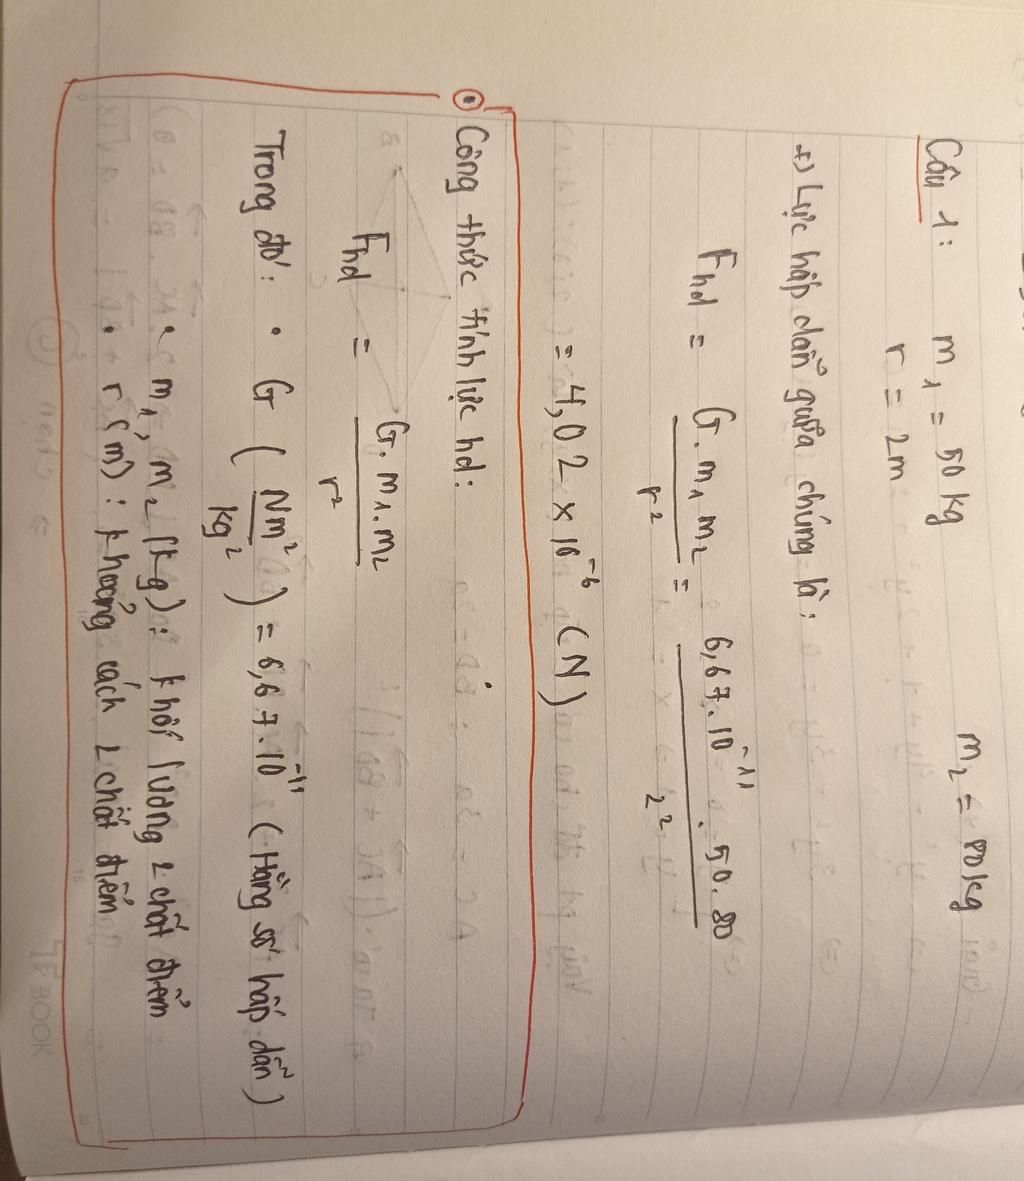 Câu 1: m₁ = 50 kg m₂ = 80 kg
r = 2m
+) Lực hấp dẫn giữa chúng là:
Fhd = G.m₁m₂ / r² = 6,67.10⁻¹¹.50.80 / 2²
= 4,02 × 10⁻⁶ (N)
Công thức tính lực hd:
Fhd = G.m₁.m₂ / r²
Trong đó: • G (Nm²/kg²) = 6,67.10⁻¹¹ (Hằng số hấp dẫn)
• m₁, m₂ (kg): khối lương 2 chất điểm
• r (m): khoảng cách 2 chất điểm
BOOK